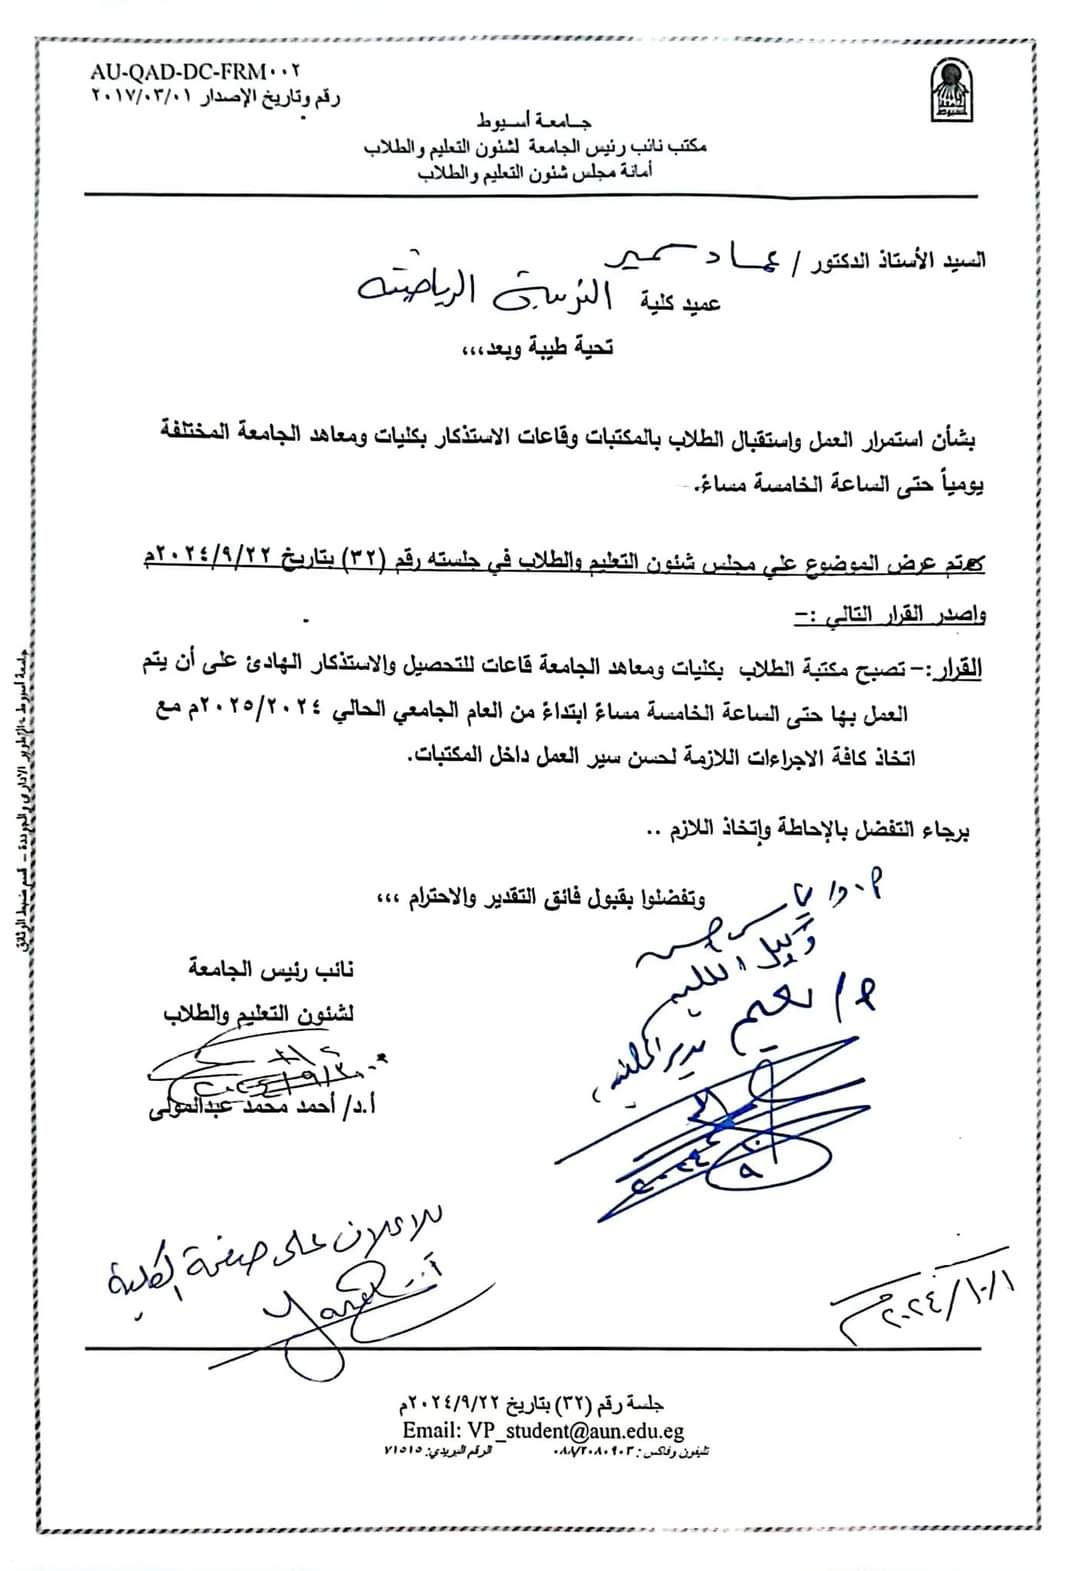 AU-QAD-DC-FRM٠٠٢
رقم وتاريخ الإصدار ٢٠١٧/٠٣/٠١
أسيوط
جامعة أسيوط
مكتب نائب رئيس الجامعة لشئون التعليم والطلاب
أمانة مجلس شئون التعليم والطلاب
السيد الأستاذ الدكتور / عماد سمير
عميد كلية التربية الرياضية
تحية طيبة وبعد،،،
بشأن استمرار العمل واستقبال الطلاب بالمكتبات وقاعات الاستذكار بكليات ومعاهد الجامعة المختلفة
يومياً حتى الساعة الخامسة مساءً.
تم عرض الموضوع علي مجلس شئون التعليم والطلاب في جلسته رقم (٣٢) بتاريخ ٢٠٢٤/٩/٢٢م
واصدر القرار التالي :-
القرار :- تصبح مكتبة الطلاب بكليات ومعاهد الجامعة قاعات للتحصيل والاستذكار الهادئ على أن يتم
العمل بها حتى الساعة الخامسة مساءً ابتداءً من العام الجامعي الحالي ٢٠٢٥/٢٠٢٤م مع
اتخاذ كافة الاجراءات اللازمة لحسن سير العمل داخل المكتبات.
برجاء التفضل بالإحاطة وإتخاذ اللازم ..
وتفضلوا بقبول فائق التقدير والاحترام ،،،
وكيل
نعيم مدير المكتبة
نائب رئيس الجامعة
لشئون التعليم والطلاب
أ.د/ أحمد محمد عبدالمولى
للاعلان على صفحة الكلية
٢٠٢٤/١٠/١م
جلسة رقم (٣٢) بتاريخ ٢٠٢٤/٩/٢٢م
Email: VP_student@aun.edu.eg
تليفون وفاكس : ٠٨٨/٢٠٨٠٩٠٣ الرقم البريدي: ٧١٥١٥